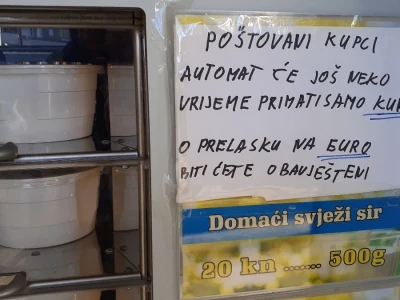 POŠTOVANI KUPCI
AUTOMAT ĆE JOŠ NEKO
VRIJEME PRIMATI SAMO
O PRELASKU NA EURO
BITI ĆETE OBAVJEŠTENI
Domaći svježi sir
20 kn ....... 500g